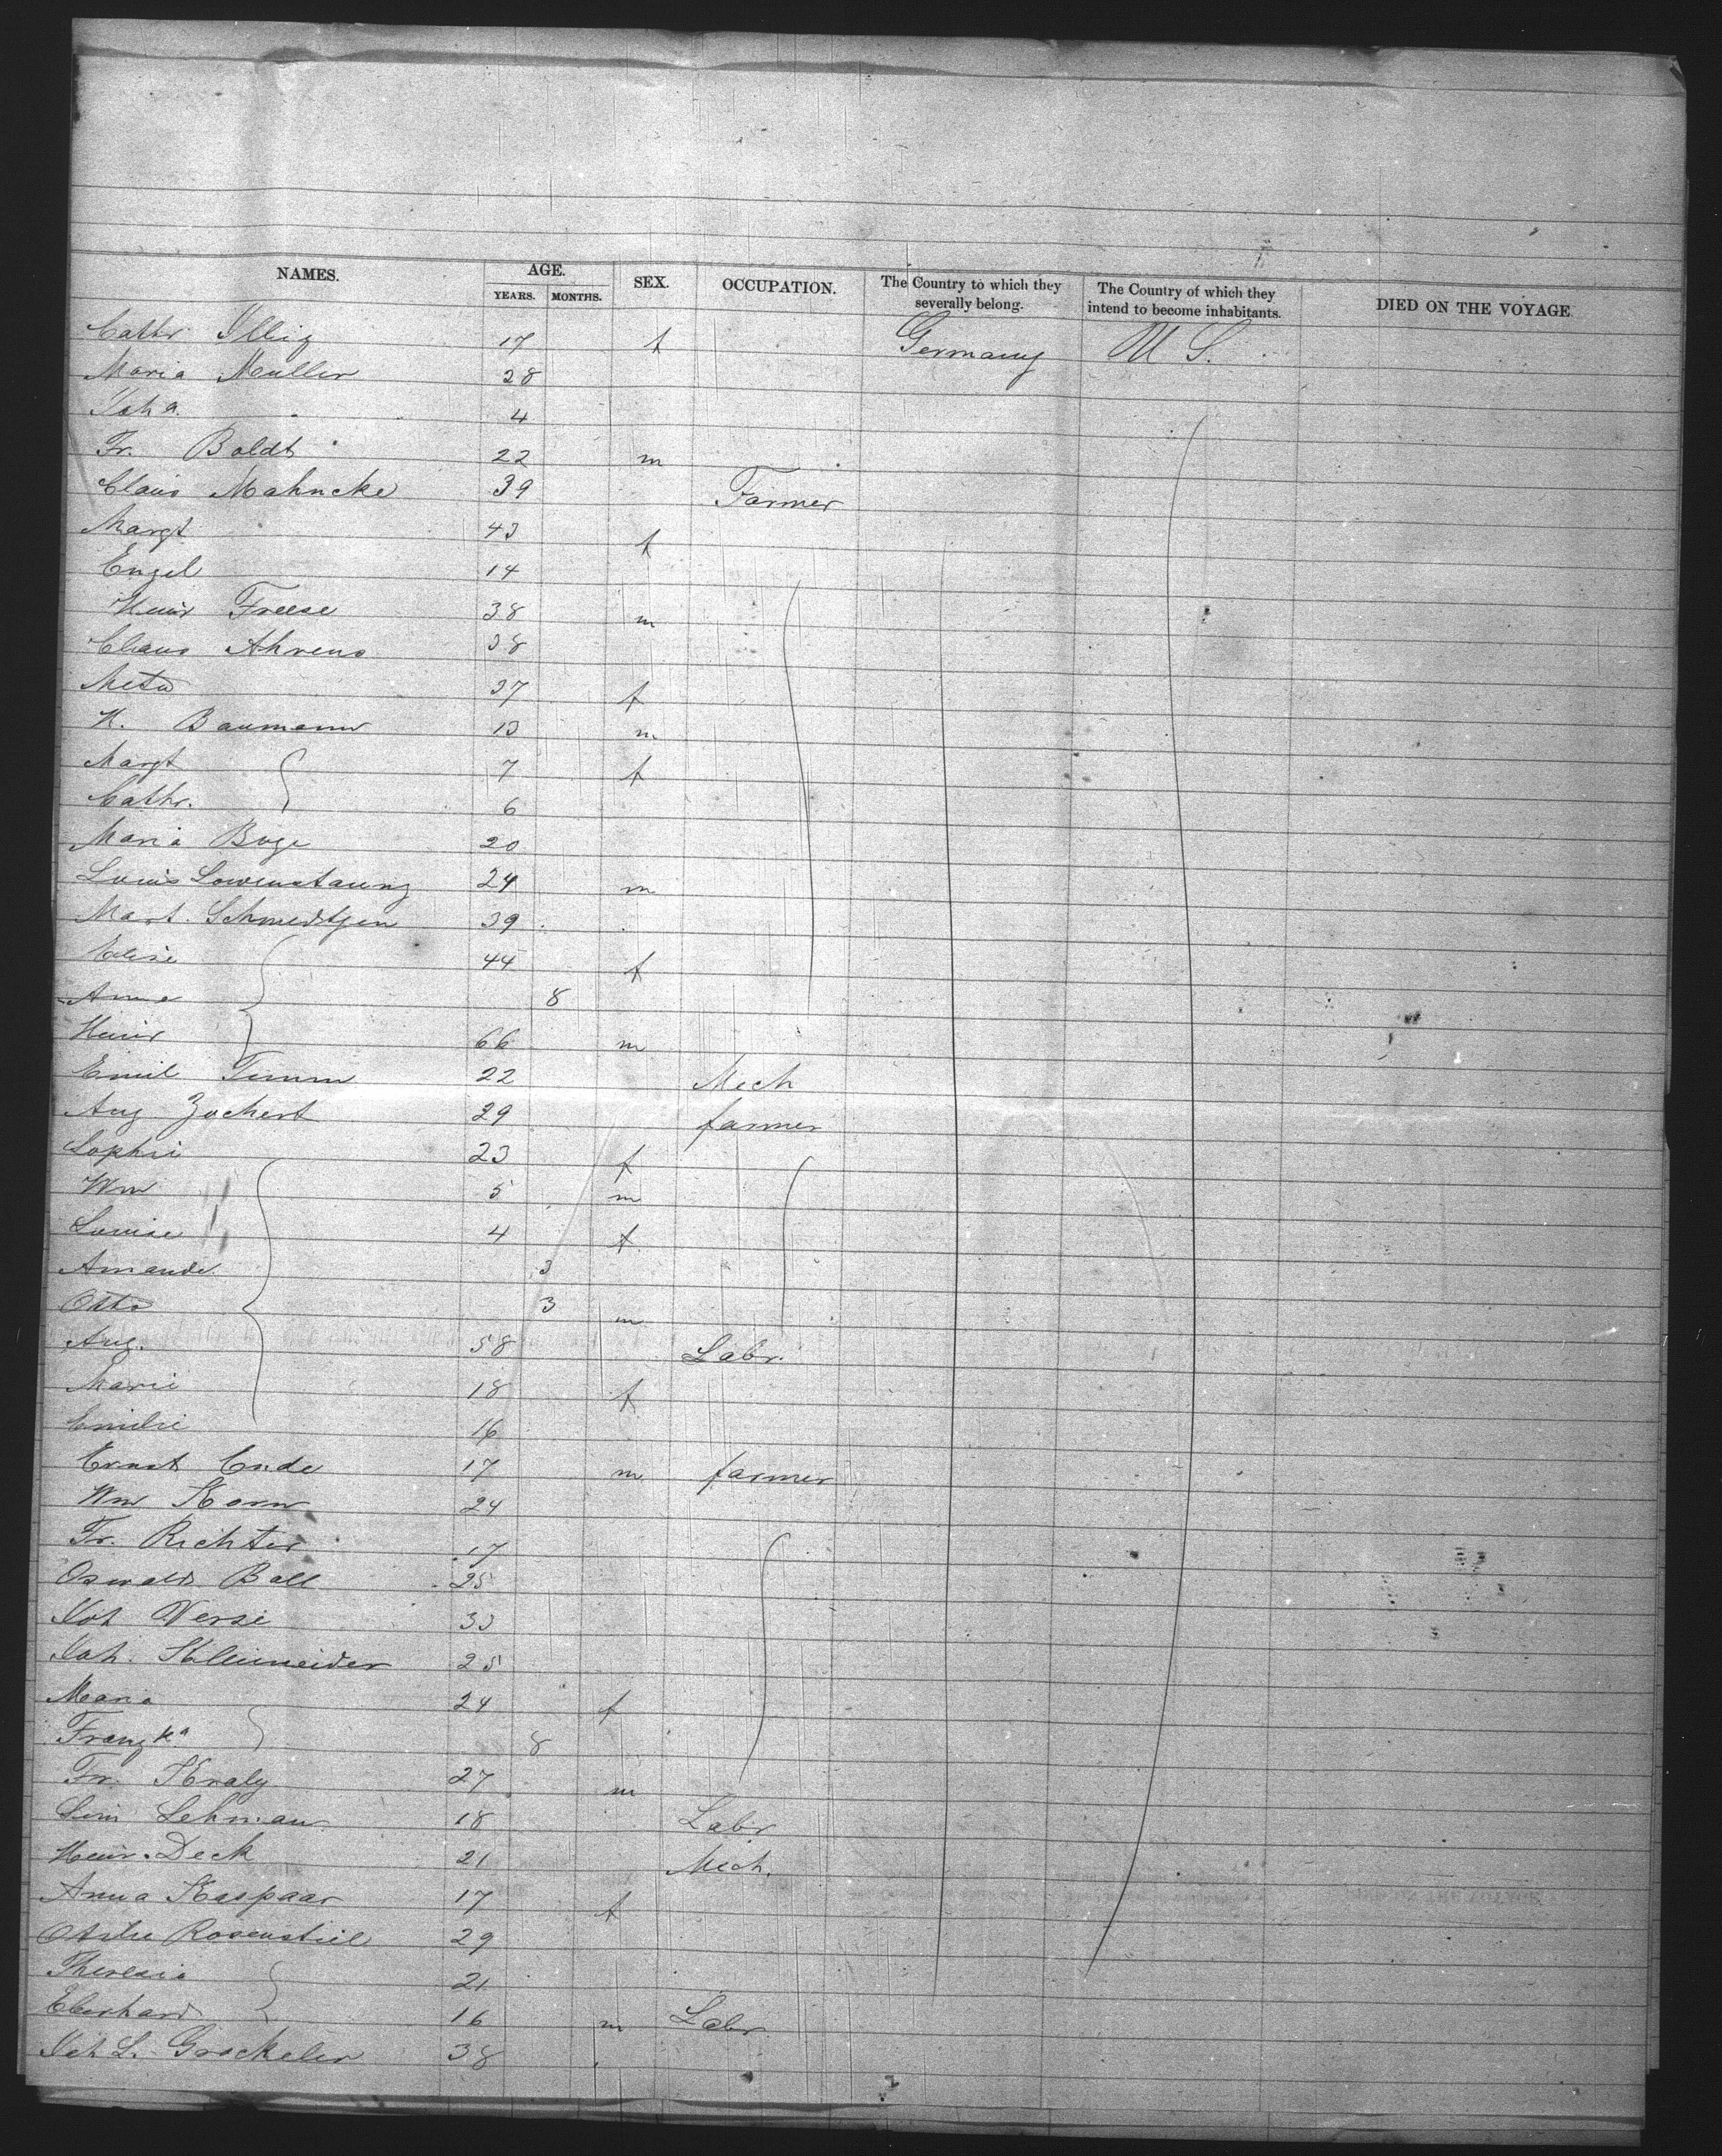 NAMES. AGE. SEX. OCCUPATION. The Country to which they severally belong. The Country of which they intend to become inhabitants. DIED ON THE VOYAGE
YEARS. MONTHS.
Cathr Illig 17 f Germany U S.
Maria Muller 28
Joha. 4
Fr. Boldt 22 m
Claus Mahncke 39 Farmer
Margt 43 f
Engel 14
Heinr Freese 38 m
Claus Ahrens 38
Meta 37 f
H. Baumann 13 m
Margt 7 f
Cathr. 6
Maria Boge 20
Louis 24 m
Mart. Schmedtjen 39
Elise 44 f
Anna 8
Heinr 66 m
Emil Timm 22 Mech
Aug Zochert 29 farmer
Sophie 23 f
Wm 5 m
Louise 4 f
Amande 3
Otto 3 m
Aug. 58 Labr.
Marie 18 f
Emilie 16
Ernst Ende 17 m farmer
Wm Korn 24
Fr. Richter 17
Oswald Ball 25
Joh Versi 33
Joh. Kleineider 25
Maria 24 f
Franzka 8
Fr. Kraly 27 m
Lehman 18 Labr
Heinr. Deck 21 Mech.
Anna Kaspaar 17 f
Rosenstiel 29
Theresia 21
Eberhard 16 m Labr
Joh L. Grockeler 38